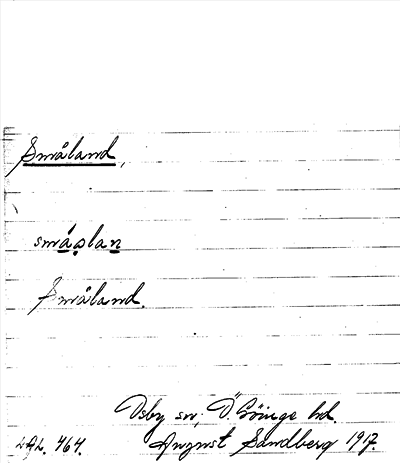 Småland,
småslan
Småland.
Osby sn; Ö. Göinge hd.
LAL. 464. August Sandberg 1917.